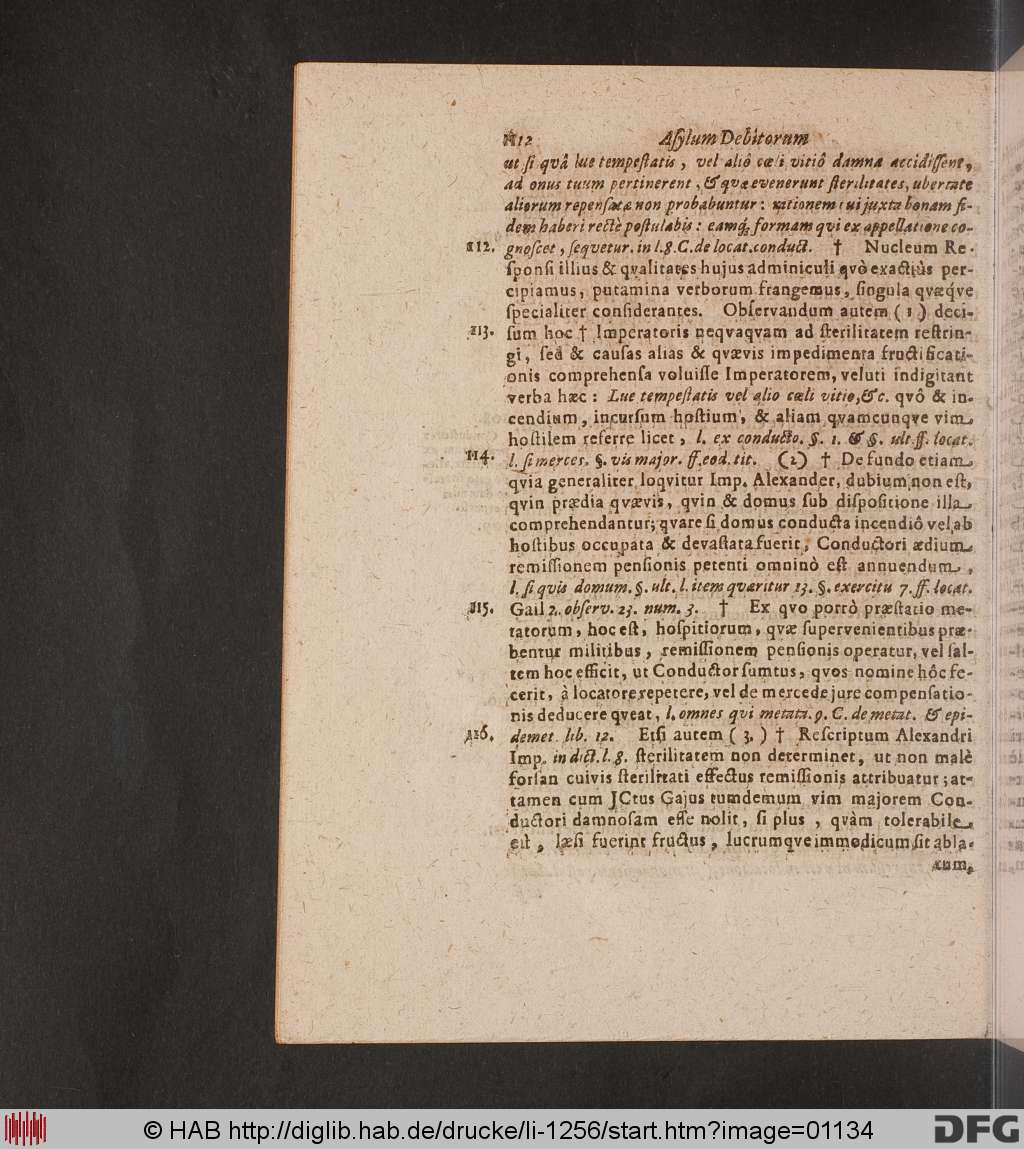 112 Aſylum Debitorum
ut ſi quâ lue tempeſtatis, vel aliô cœli vitiô damna accidiſſent,
ad onus tuum pertinerent, & quæ evenerunt ſterilitates, ubertate
aliorum repenſatæ non probabuntur: rationem tui juxta bonam fi-
dem haberi rectè poſtulabis: eamq́; formam qui ex appellatione co-
112. gnoſcet, ſequetur. in l. 8. C. de locat. conduct. † Nucleum Re-
ſponſi illius & qvalitates hujus adminiculi qvò exactiùs per-
cipiamus, putamina verborum frangemus, ſingula qvæq́ve
ſpecialiter conſiderantes. Obſervandum autem (1) deci-
113. ſum hoc † Imperatoris neqvaqvam ad ſterilitatem reſtrin-
gi, ſed & cauſas alias & qvævis impedimenta fructificati-
onis comprehenſa voluiſſe Imperatorem, veluti indigitant
verba hæc: Lue tempeſtatis vel alio cæli vitio, &c. qvô & in-
cendium, incurſum hoſtium, & aliam qvamcunqve vim
hoſtilem referre licet, l. ex conducto. §. 1. & §. ult. ff. locat.
114. l. ſi merces. §. vis major. ff. eod. tit. (2) † De fundo etiam
qvia generaliter loqvitur Imp. Alexander, dubium non eſt,
qvin prædia qvævis, qvin & domus ſub diſpoſitione illa
comprehendantur; qvare ſi domus conducta incendiô vel ab
hoſtibus occupata & devaſtata fuerit, Conductori ædium
remiſſionem penſionis petenti omninò eſt annuendum,
l. ſi quis domum. §. ult. l. item quæritur 13. §. exercitu 7. ff. locat.
115. Gail 2. obſerv. 23. num. 3. † Ex qvo porrò præſtatio me-
tatorum, hoc eſt, hoſpitiorum, qvæ ſupervenientibus præ-
bentur militibus, remiſſionem penſionis operatur, vel ſal-
tem hoc efficit, ut Conductor ſumtus, qvos nomine hôc fe-
cerit, à locatore repetere, vel de mercede jure compenſatio-
nis deducere qveat, l. omnes qvi metata. 9. C. de metat. & epi-
116. demet. lib. 12. Etſi autem (3.) † Reſcriptum Alexandri
Imp. in dict. l. 8. ſterilitatem non determinet, ut non malè
forſan cuivis ſterilitati effectus remiſſionis attribuatur; at-
tamen cum JCtus Gajus tumdemum vim majorem Con-
ductori damnoſam eſſe nolit, ſi plus, qvàm tolerabile
eſt, læſi fuerint fructus, lucrumqve immodicum ſit abla-
tum,
© HAB http://diglib.hab.de/drucke/li-1256/start.htm?image=01134
DFG